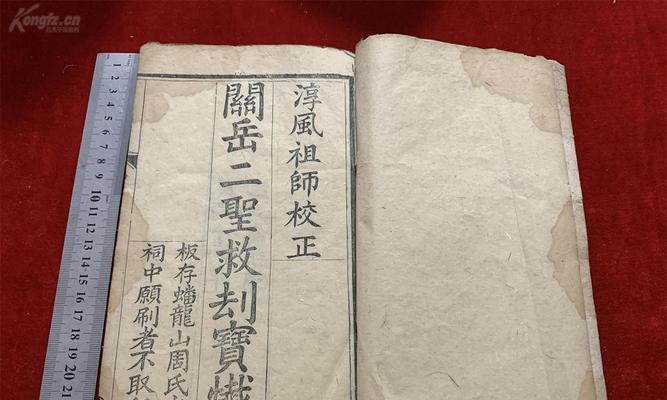 Kongfz.cn
淳風祖師校正
關岳二聖救刦寶懴
板存蟠龍山周氏
祠中願刷者不取
1 2 3 4 5 6 7 8 9 10 11 12 13 14 15 16 17 18 19 20 21